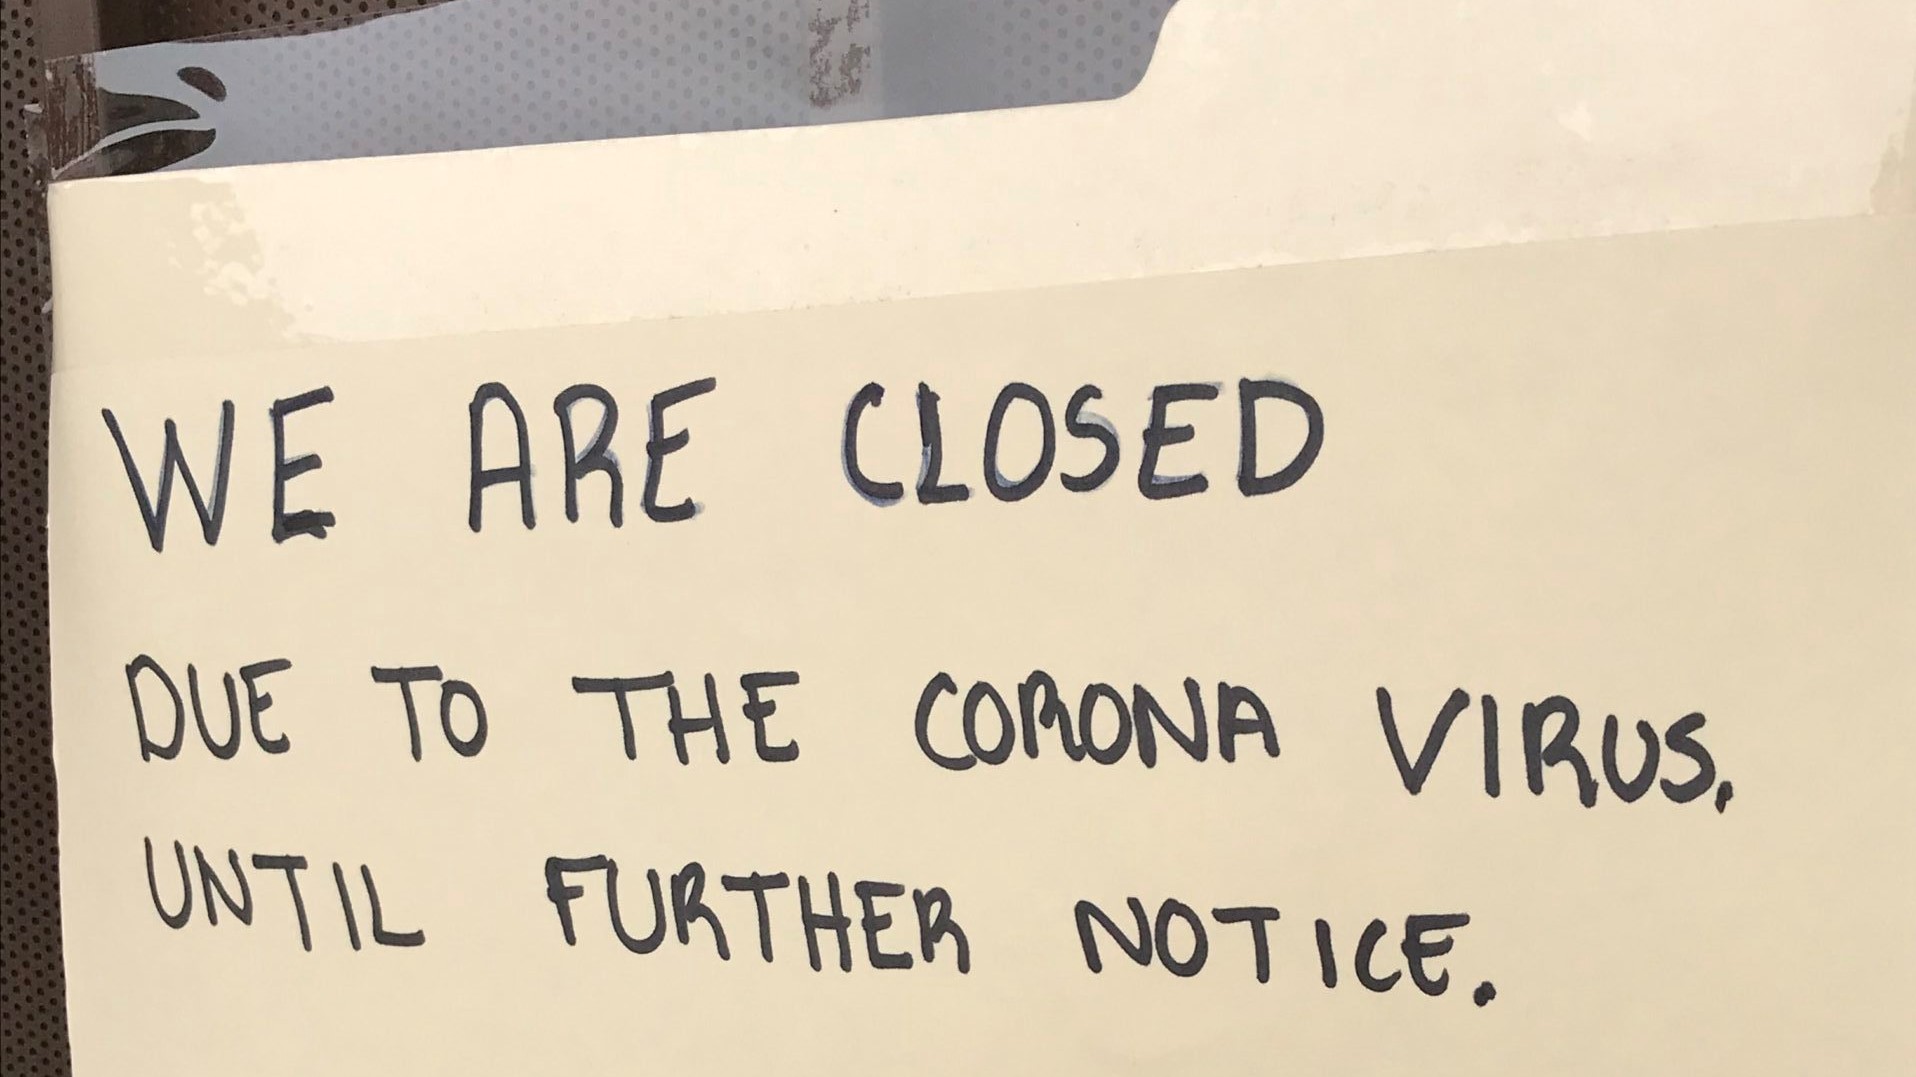 WE ARE CLOSED
DUE TO THE CORONA VIRUS.
UNTIL FURTHER NOTICE.